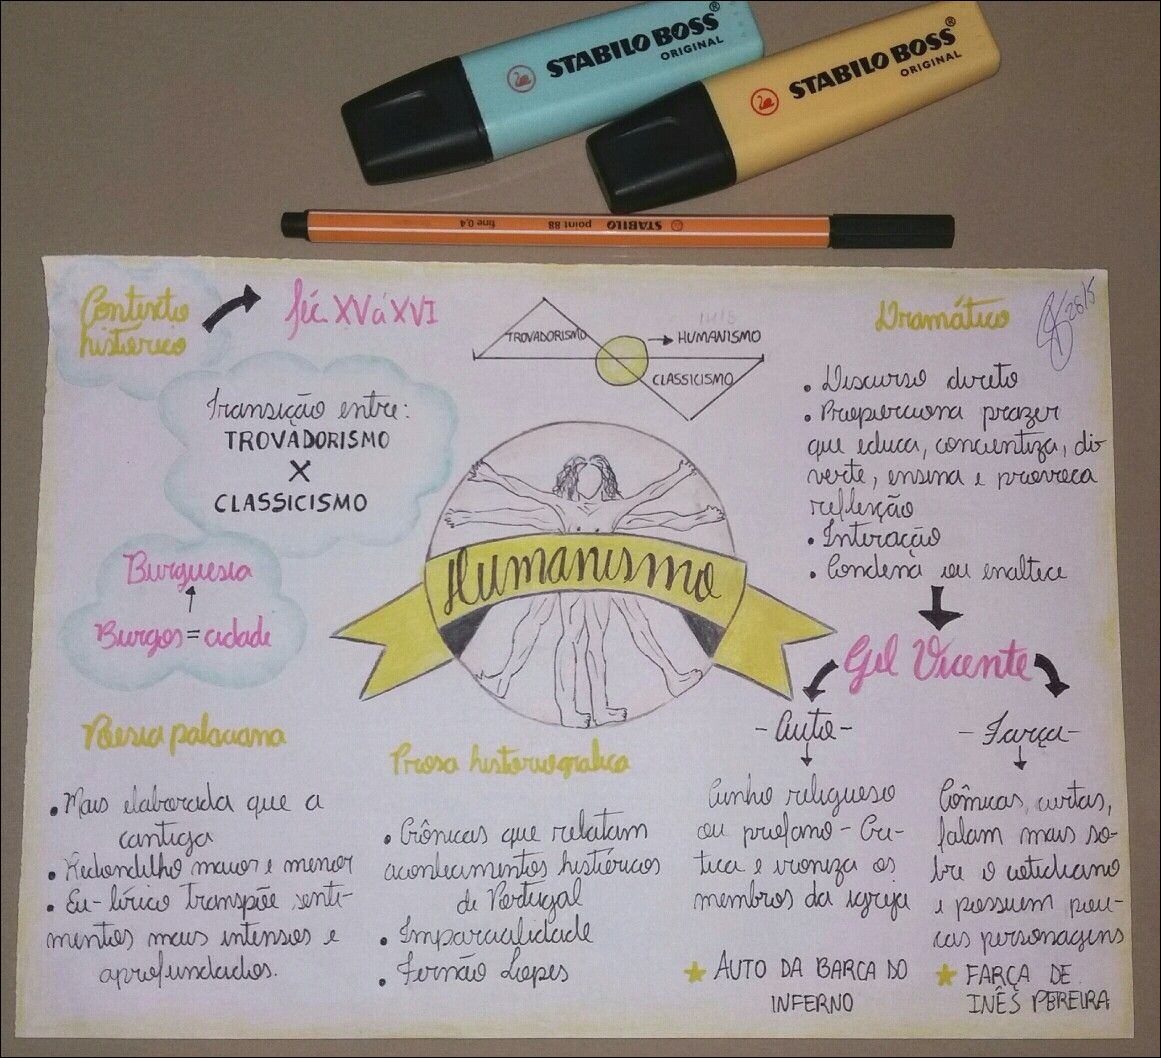 STABILO BOSS®
ORIGINAL
STABILO BOSS®
ORIGINAL
STABILO point 88 fine 0,4
Contexto
histórico
Séc. XV á XVI
Transição entre:
TROVADORISMO
X
CLASSICISMO
Burguesia
Burgos = cidade
TROVADORISMO
1418
HUMANISMO
CLASSICISMO
Humanismo
Dramático
28/5
• Discurso direto
• Proporciona prazer
que educa, concientiza, di
verte, ensina e provoca
reflexção
• Interação
• Condena ou enaltece
Gil Vicente
- Auto -
Cunho religioso
ou profano - Cri-
tica e ironiza os
membros da igreja
AUTO DA BARCA DO
INFERNO
- Farça -
Cômicas, curtas,
falam mais so-
bre o cotidiano
e possuem pou-
cas personagens
FARÇA DE
INÊS PEREIRA
Poesia palaciana
• Mais elaborada que a
cantiga
• Redondilho maior e menor
• Eu-lírico transpõe senti-
mentos mais intensos e
aprofundados.
Prosa historiografica
• Crônicas que relatam
acontecimentos históricos
de Portugal
• Imparcialidade
• Fernão Lopes